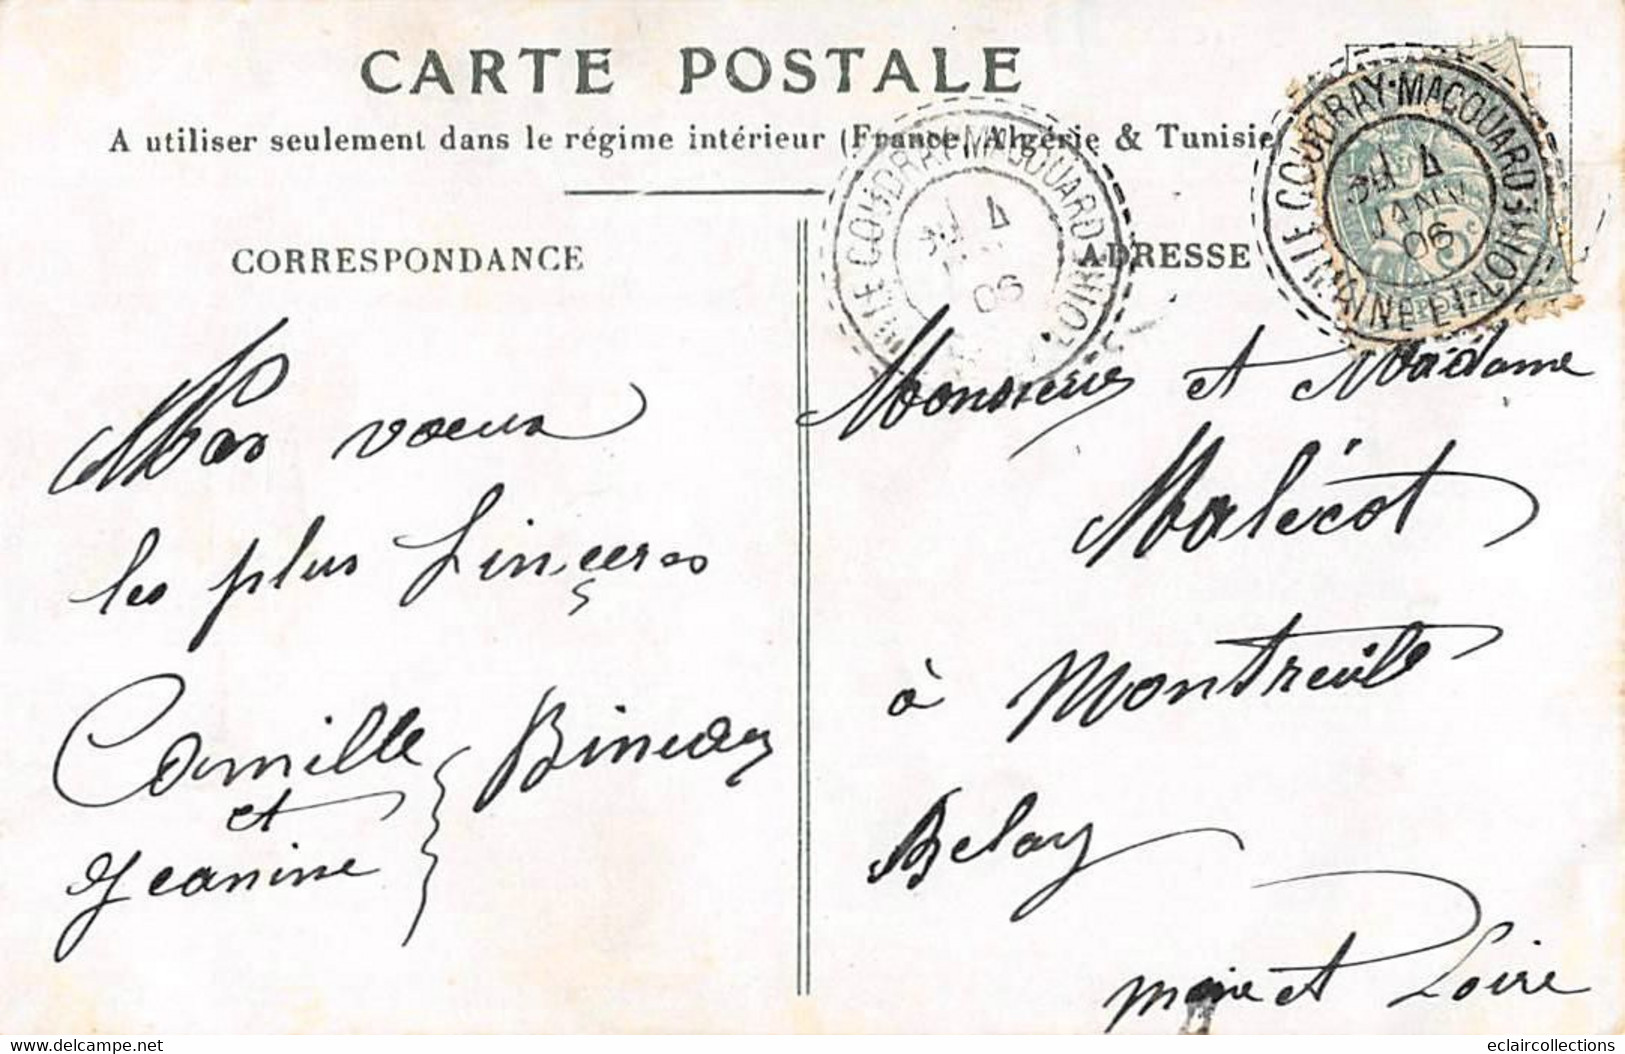 CARTE POSTALE
A utiliser seulement dans le régime intérieur (France, Algérie & Tunisie
CORRESPONDANCE
ADRESSE
LE COUDRAY-MACOUARD
MAINE ET LOIRE
4
JANV
06
LE COUDRAY-MACOUARD
LOIRE
4
06
5c
Mes voeux
les plus sinçeres
Camille
et
Jeanine
Monsieur et Madame
Malécot
à Montreuil
Belay
Maine et Loire
www.delcampe.net
eclaircollections